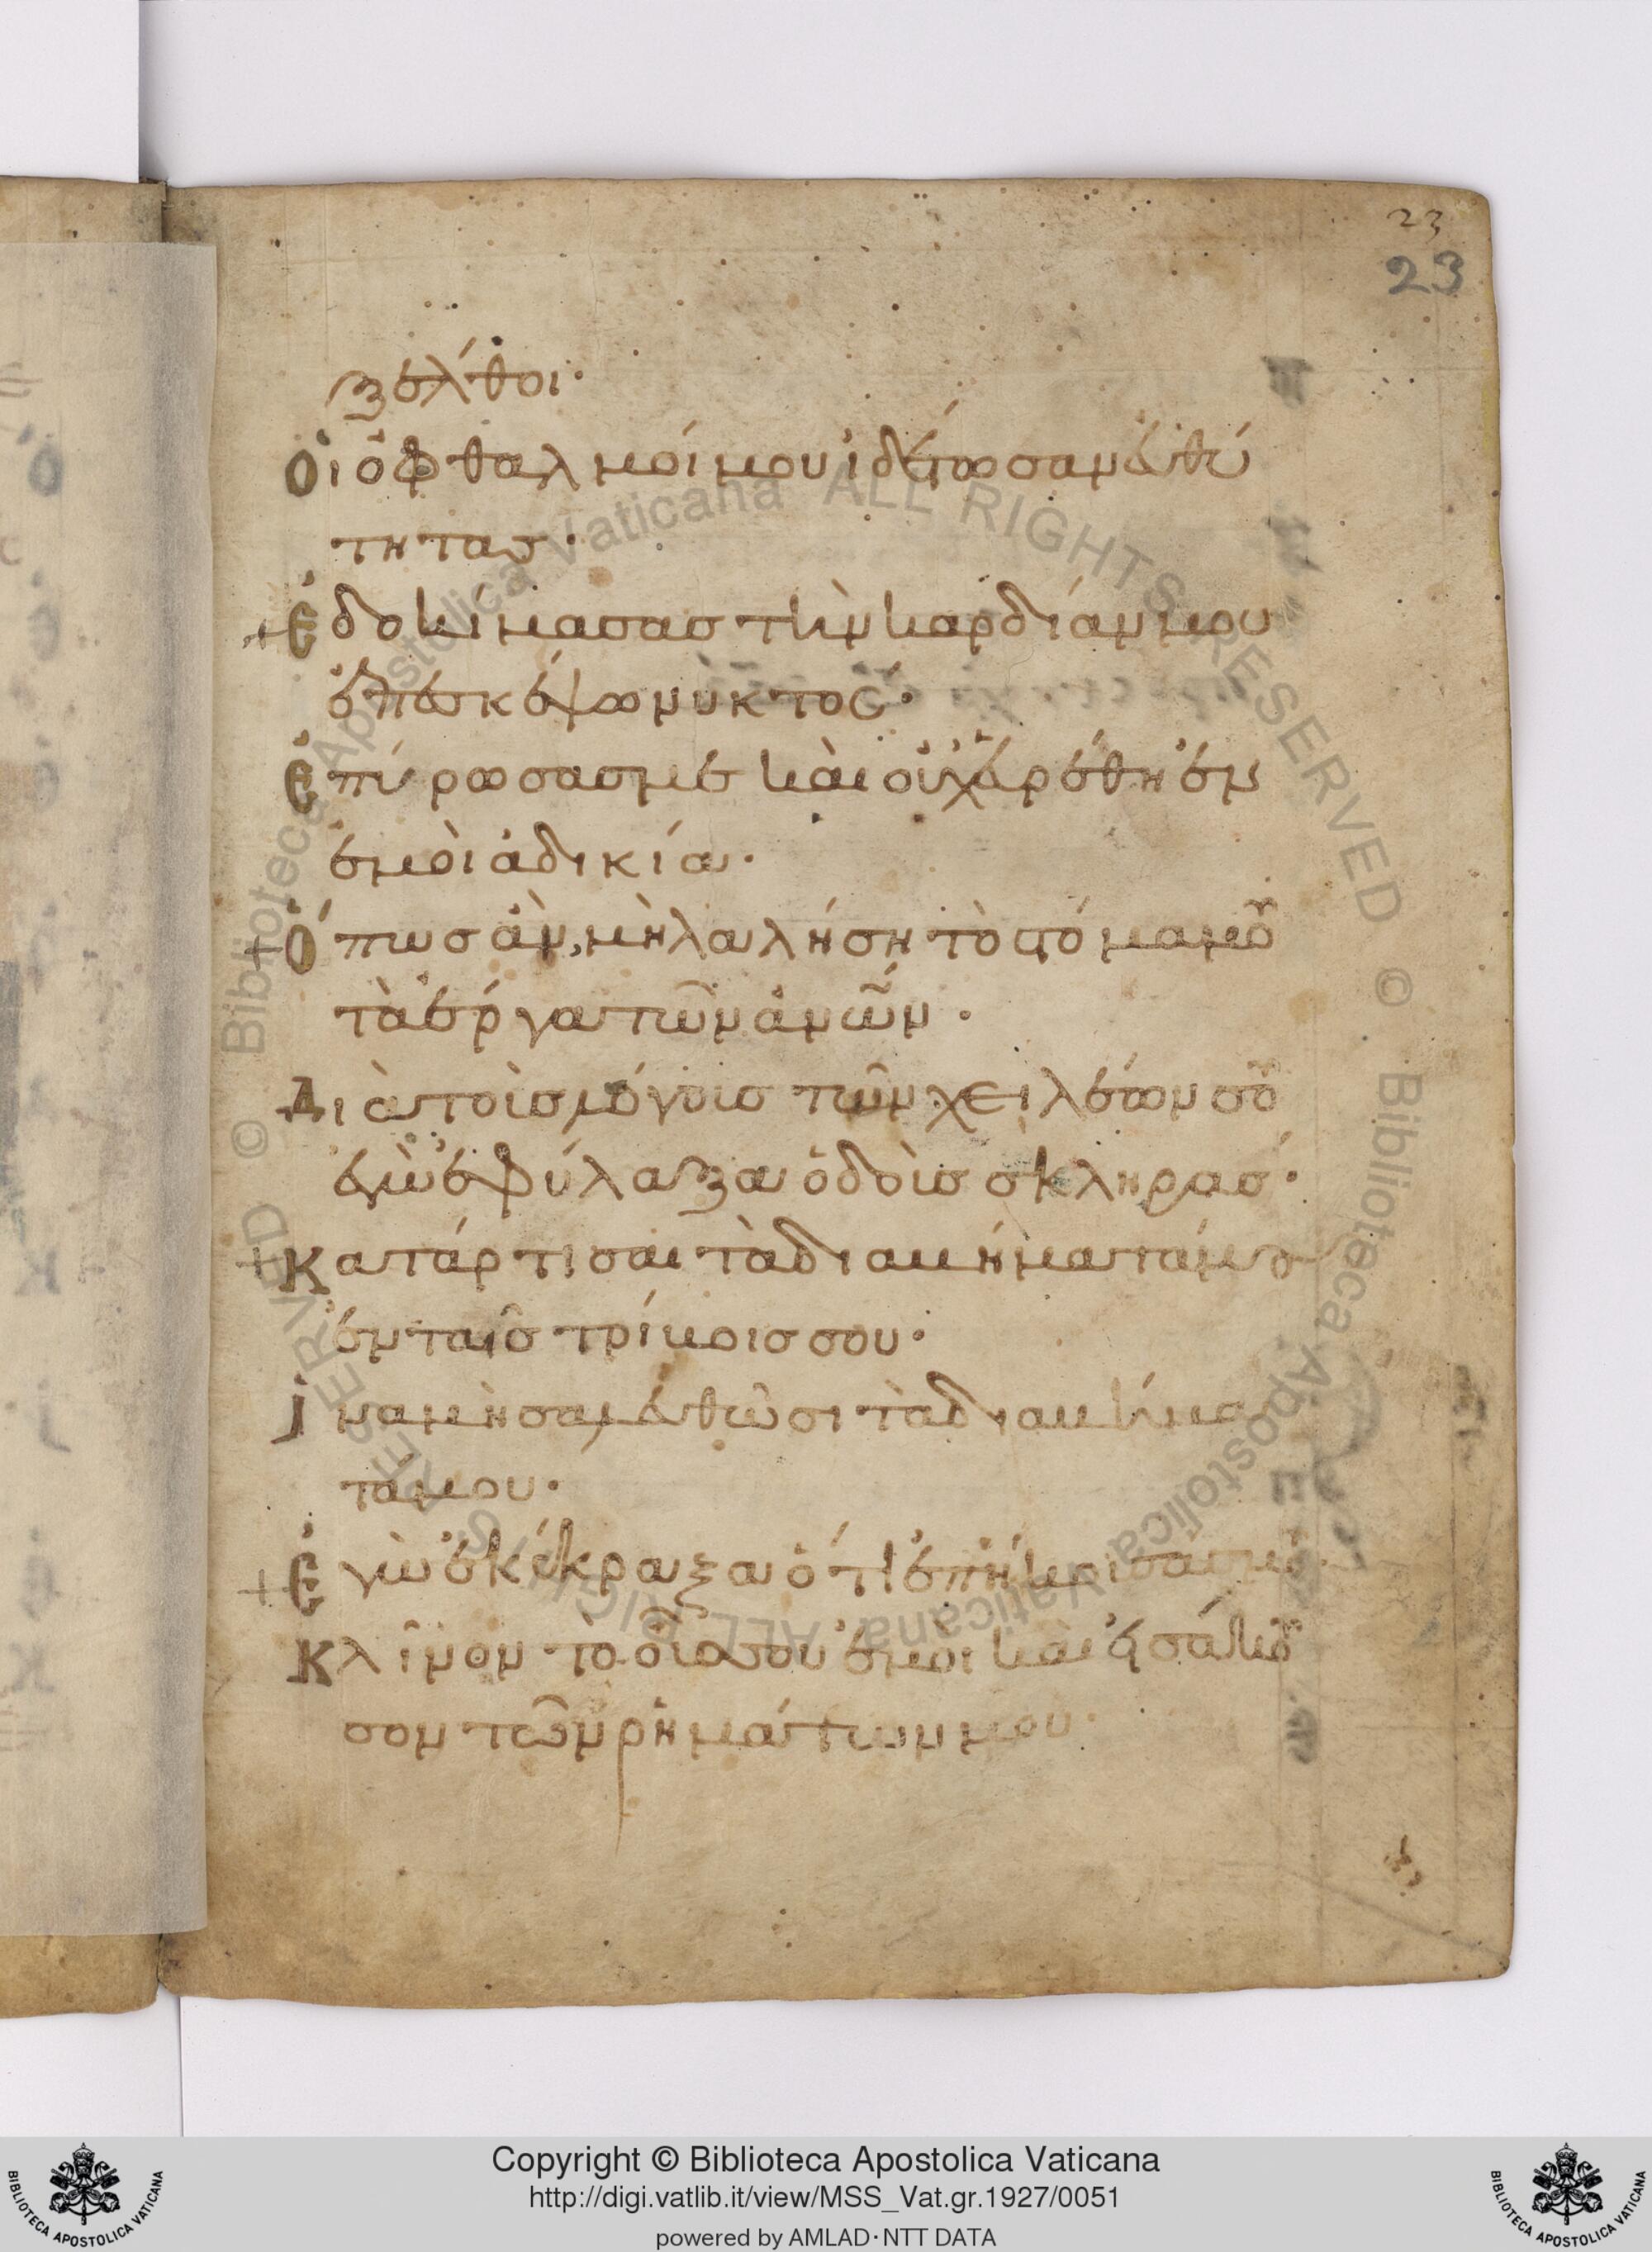 23
23
ξέλθοι·
Οἱ ὀφθαλμοί μου ἰδέτωσαν εὐθύ
τητας·
Ἐδοκίμασας τὴν καρδίαν μου
ἐπεσκέψω νυκτός·
Ἐπύρωσάς με καὶ οὐχ εὑρέθη ἐν
ἐμοὶ ἀδικία·
Ὅπως ἂν μὴ λαλήση τὸ στόμα μου
τὰ ἔργα τῶν ἀνῶν·
Διὰ τοὺς λόγους τῶν χειλέων σου
ἐγὼ ἐφύλαξα ὁδοὺς σκληρας·
Κατάρτισαι τὰ διαβήματά μου
ἐν ταῖς τρίβοις σου·
Ἵνα μὴ σαλευθῶσι τὰ διαβήμα
τα μου·
Ἐγὼ ἐκέκραξα ὅτι ἐπήκουσας μου·
Κλῖνον τὸ οὖς σου ἐμοὶ καὶ εἰσάκου
σον τῶν ῥημάτων μου·
© Biblioteca Apostolica Vaticana ALL RIGHTS RESERVED © Biblioteca Apostolica Vaticana ALL RIGHTS RESERVED
Copyright © Biblioteca Apostolica Vaticana
http://digi.vatlib.it/view/MSS_Vat.gr.1927/0051
powered by AMLAD·NTT DATA
BIBLIOTECA APOSTOLICA VATICANA
BIBLIOTECA APOSTOLICA VATICANA